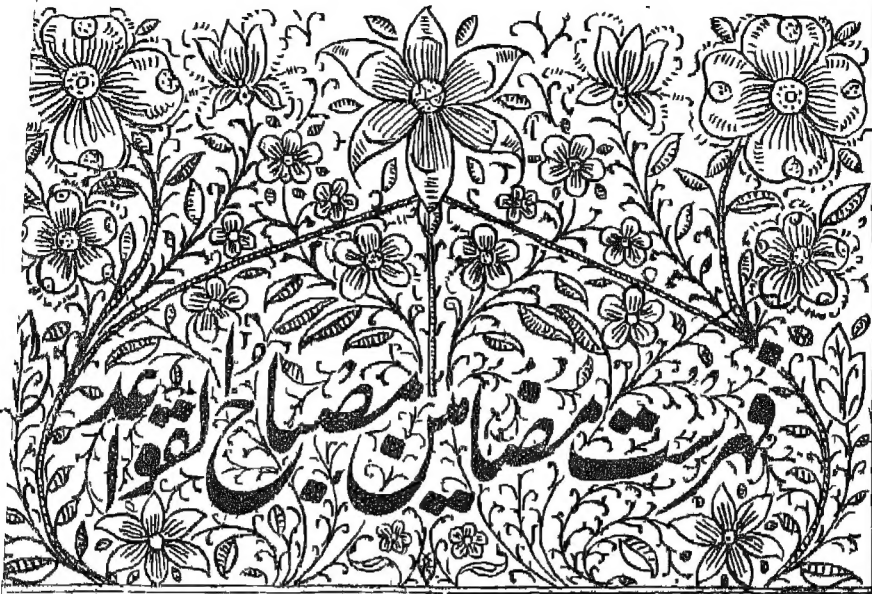 فہرست مضامین مصباح القواعد